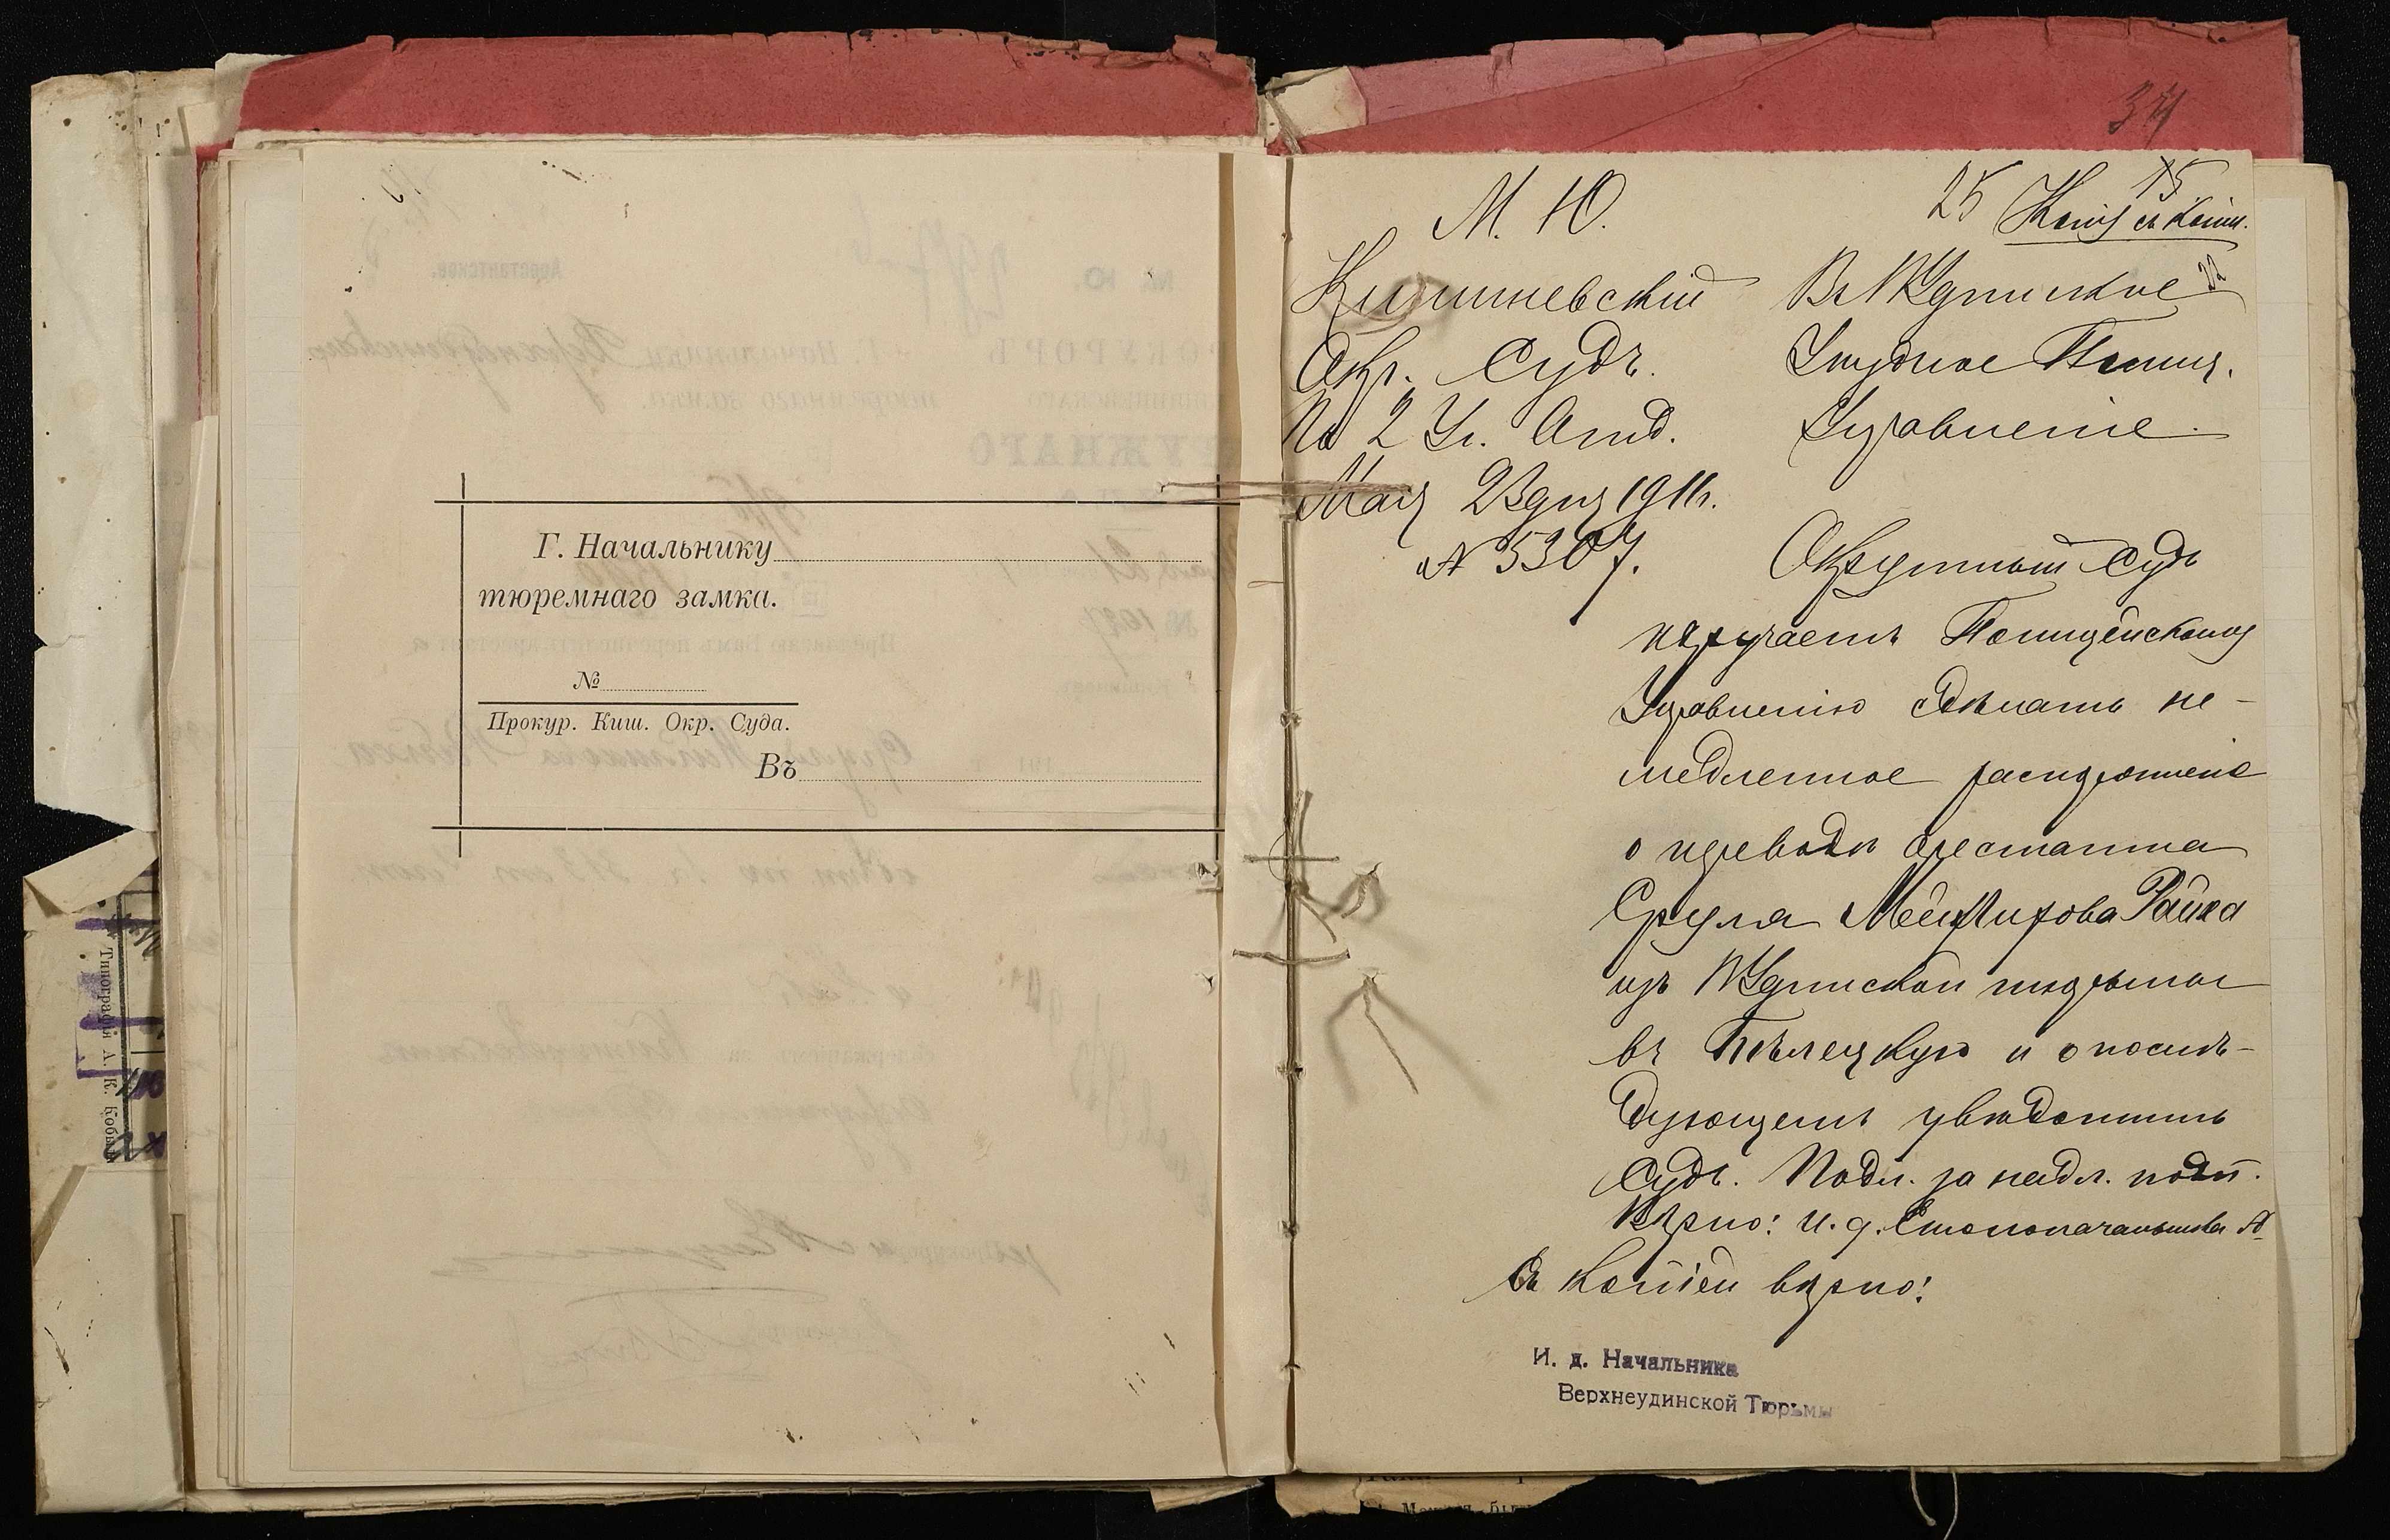 Г. Начальнику
тюремнаго замка.
№
Прокур. Киш. Окр. Суда.
Въ
34
М. Ю.
25 15
Копія съ копіи.
22
Кишиневскій
Окр. Судъ.
По 2 Уг. Отд.
Мая 23 дня 1911 г.
№ 5307.
В.Удинское
Уѣздное Полиц.
Управленіе.
Окружный Судъ
поручаетъ Полицейскому
Управленію сдѣлать не-
медленное распоряженіе
о переводѣ арестанта
Сруля Мейлирова Райха
изъ В.Удинской тюрьмы
въ Бѣлецкую и о послѣ-
дующемъ увѣдомить
Судъ. Подл. за надл. подп.
Вѣрно: И. д. Столоначальника
Съ копіей вѣрно:
И. д. Начальника
Верхнеудинской Тюрьмы
Типографія А. К. Кобы